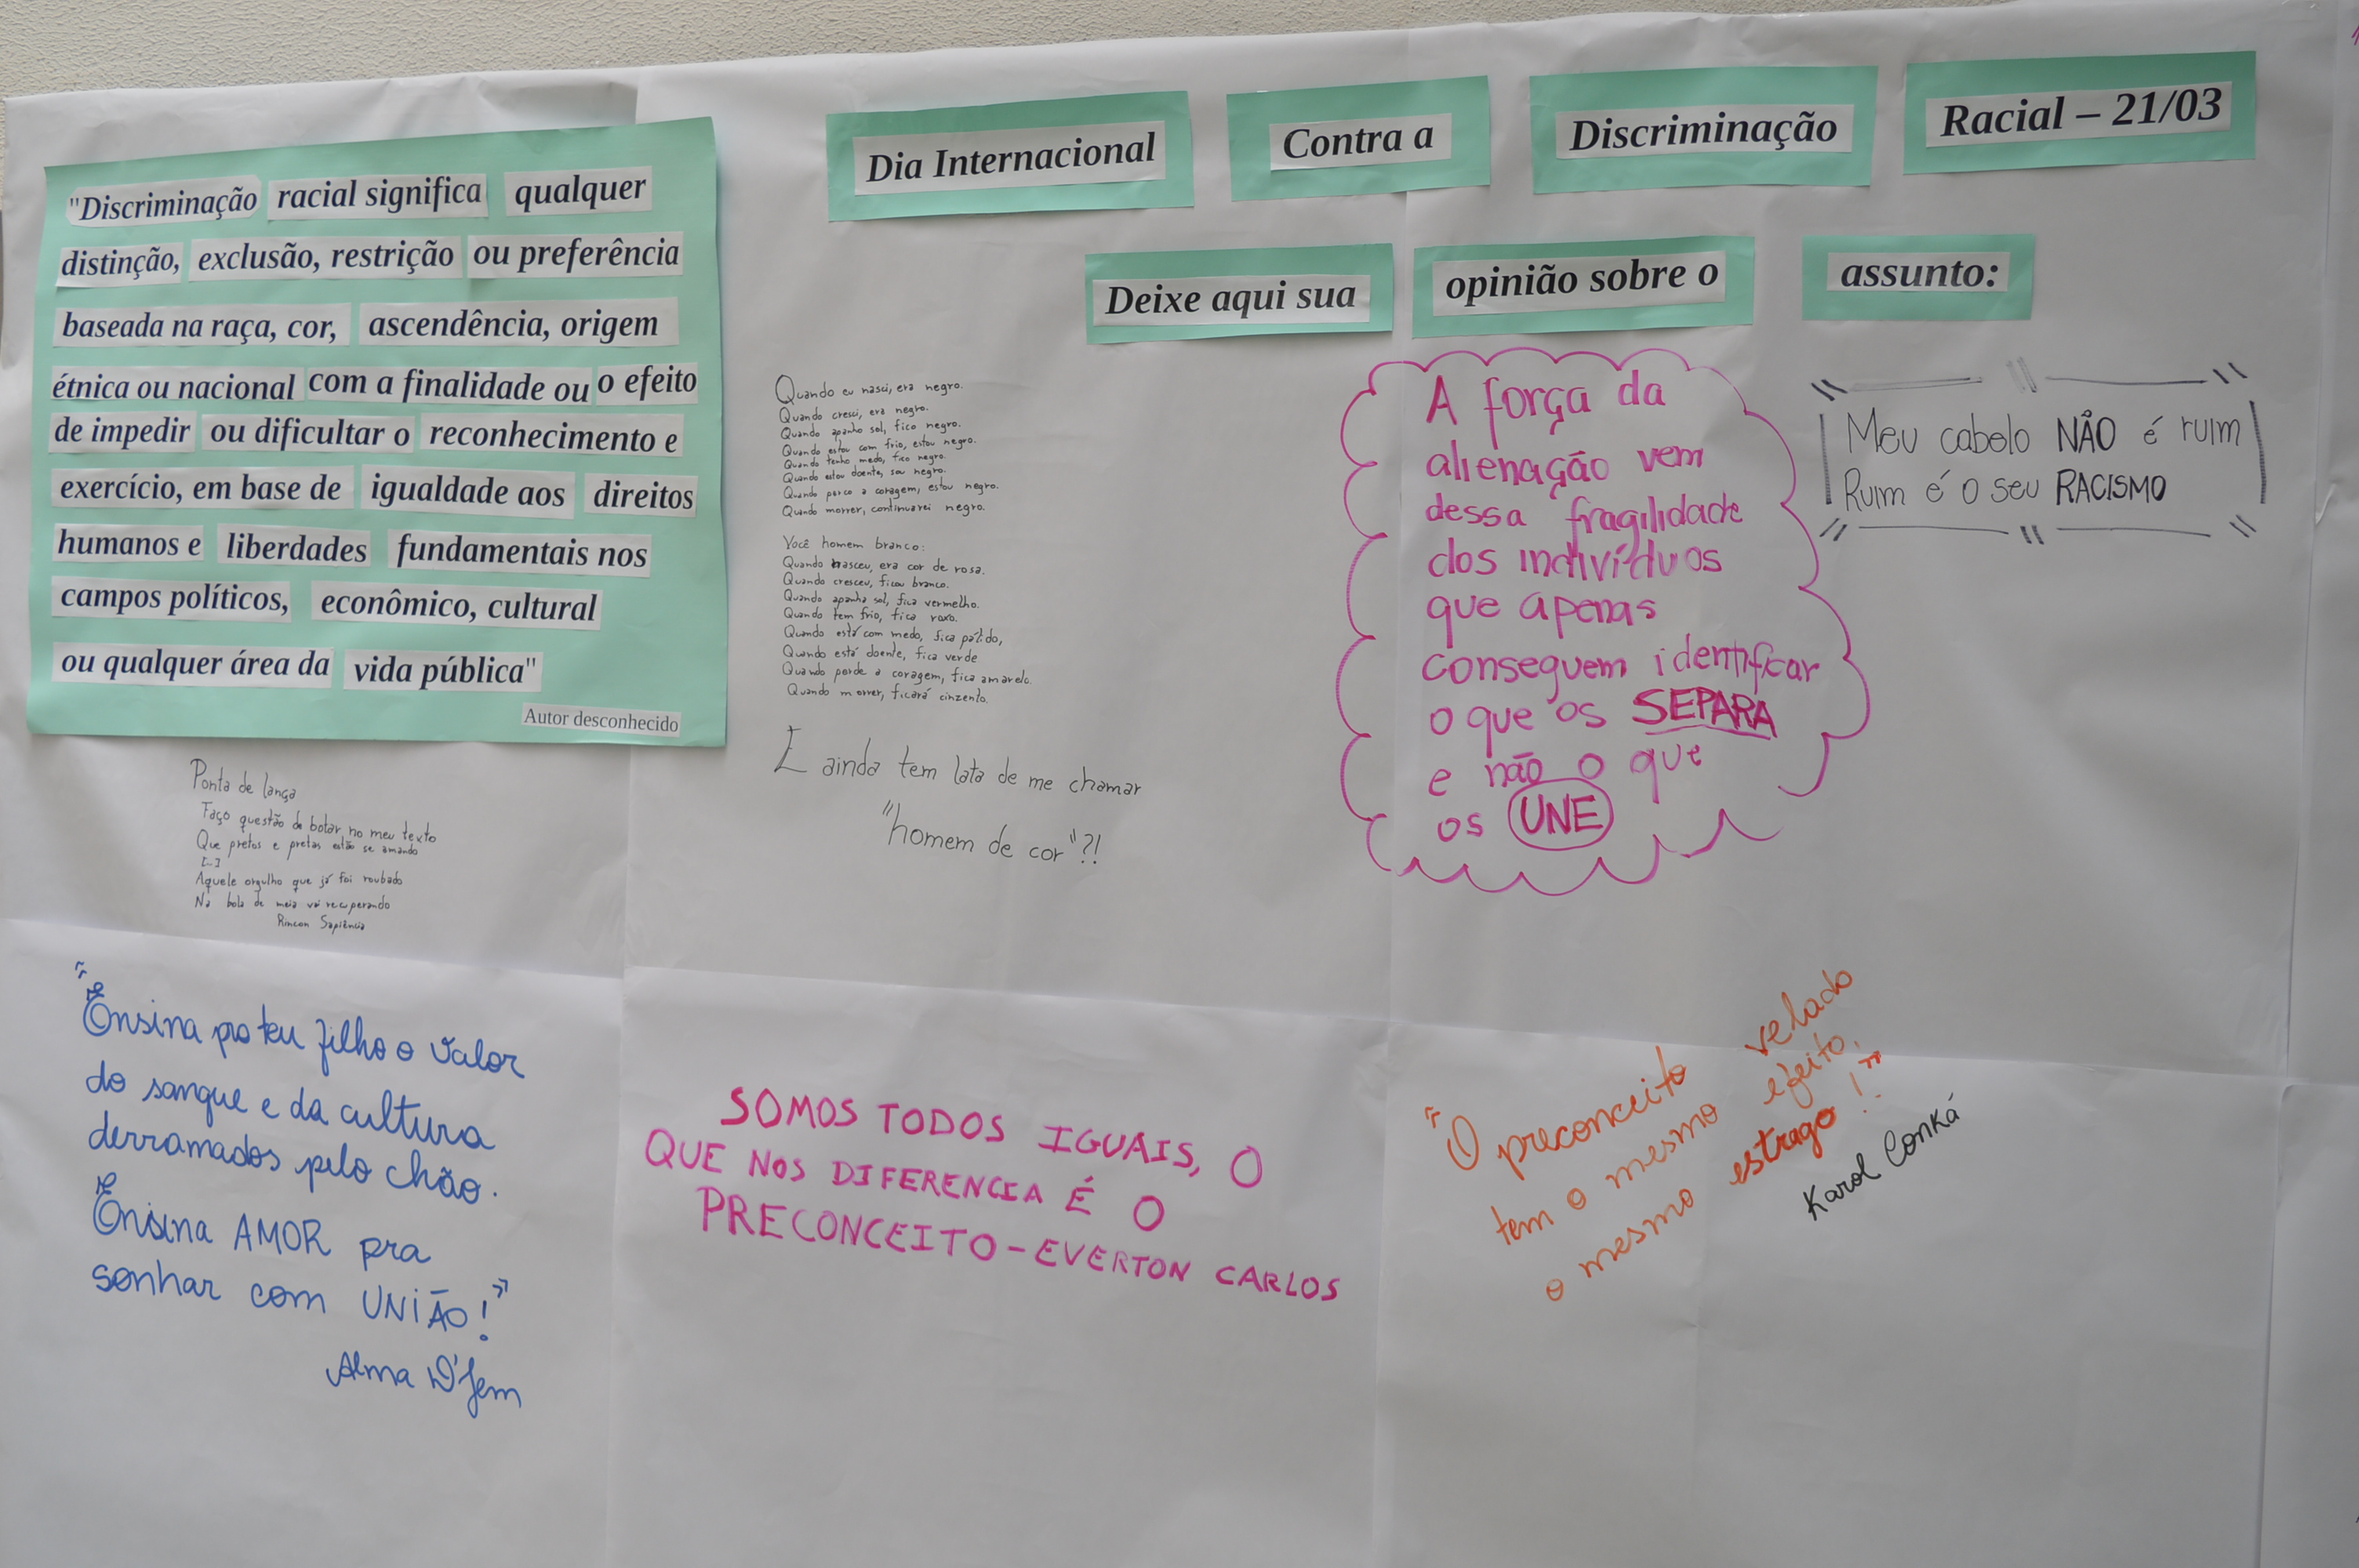 Dia Internacional Contra a Discriminação Racial – 21/03
Deixe aqui sua opinião sobre o assunto:
"Discriminação racial significa qualquer
distinção, exclusão, restrição ou preferência
baseada na raça, cor, ascendência, origem
étnica ou nacional com a finalidade ou o efeito
de impedir ou dificultar o reconhecimento e
exercício, em base de igualdade aos direitos
humanos e liberdades fundamentais nos
campos políticos, econômico, cultural
ou qualquer área da vida pública"
Autor desconhecido
Ponta de lança
Faço questão de botar no meu texto
Que pretos e pretas estão se amando
[...]
Aquele orgulho que já foi roubado
Na bola de meia vai recuperando
Rincon Sapiência
Quando eu nasci, era negro.
Quando cresci, era negro.
Quando apanho sol, fico negro.
Quando estou com frio, estou negro.
Quando tenho medo, fico negro.
Quando estou doente, sou negro.
Quando perco a coragem, estou negro.
Quando morrer, continuarei negro.
Você homem branco:
Quando nasceu, era cor de rosa.
Quando cresceu, ficou branco.
Quando apanha sol, fica vermelho.
Quando tem frio, fica roxo.
Quando está com medo, fica pálido,
Quando está doente, fica verde
Quando perde a coragem, fica amarelo.
Quando morrer, ficará cinzento.
E ainda tem lata de me chamar
"homem de cor"?!
A força da
alienação vem
dessa fragilidade
dos indivíduos
que apenas
conseguem identificar
o que os SEPARA
e não o que
os UNE
Meu cabelo NÃO é ruim
Ruim é o seu RACISMO
"Ensina pro teu filho o valor
do sangue e da cultura
derramados pelo chão.
Ensina AMOR pra
sonhar com UNIÃO!"
Alma D'Jem
SOMOS TODOS IGUAIS, O
QUE NOS DIFERENCIA É O
PRECONCEITO - EVERTON CARLOS
"O preconceito velado
tem o mesmo efeito,
o mesmo estrago!"
Karol Conká